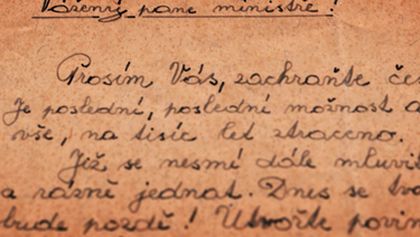 Vážený pane ministře!
Prosím Vás, zachraňte
Je poslední, poslední možnost
vše, na tisíc let ztraceno.
Již se nesmí dále
a rázně jednat. Dnes se
bude pozdě! Utvořte